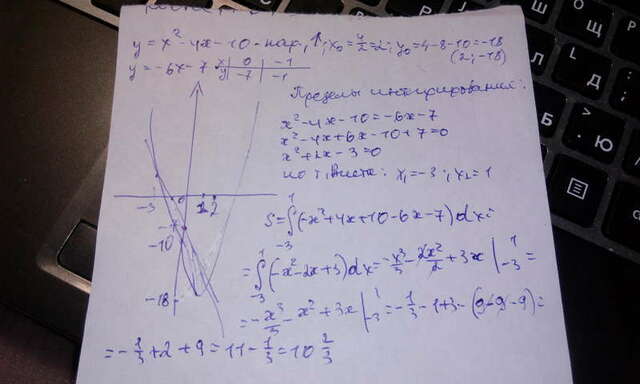 y = x² - 4x - 10 - пар, ↑, x₀ = 4/2 = 2; y₀ = 4 - 8 - 10 = -18
(2; -18)
y = -6x - 7
x | 0 | -1
y | -7 | -1
Пределы интегрирования:
x² - 4x - 10 = -6x - 7
x² - 4x + 6x - 10 + 7 = 0
x² + 2x - 3 = 0
по т. Виета: x₁ = -3; x₂ = 1
-3 0 1 2
-7
-10
-18
S = ∫₋₃¹ (-x² + 4x + 10 - 6x - 7) dx =
= ∫₋₃¹ (-x² - 2x + 3) dx = -x³/3 - 2x²/2 + 3x |₋₃¹ =
= -x³/3 - x² + 3x |₋₃¹ = -1/3 - 1 + 3 - (9 - 9 - 9) =
= -1/3 + 2 + 9 = 11 - 1/3 = 10 2/3
Ш
Щ
Д
Л
Ь
Б
Ю